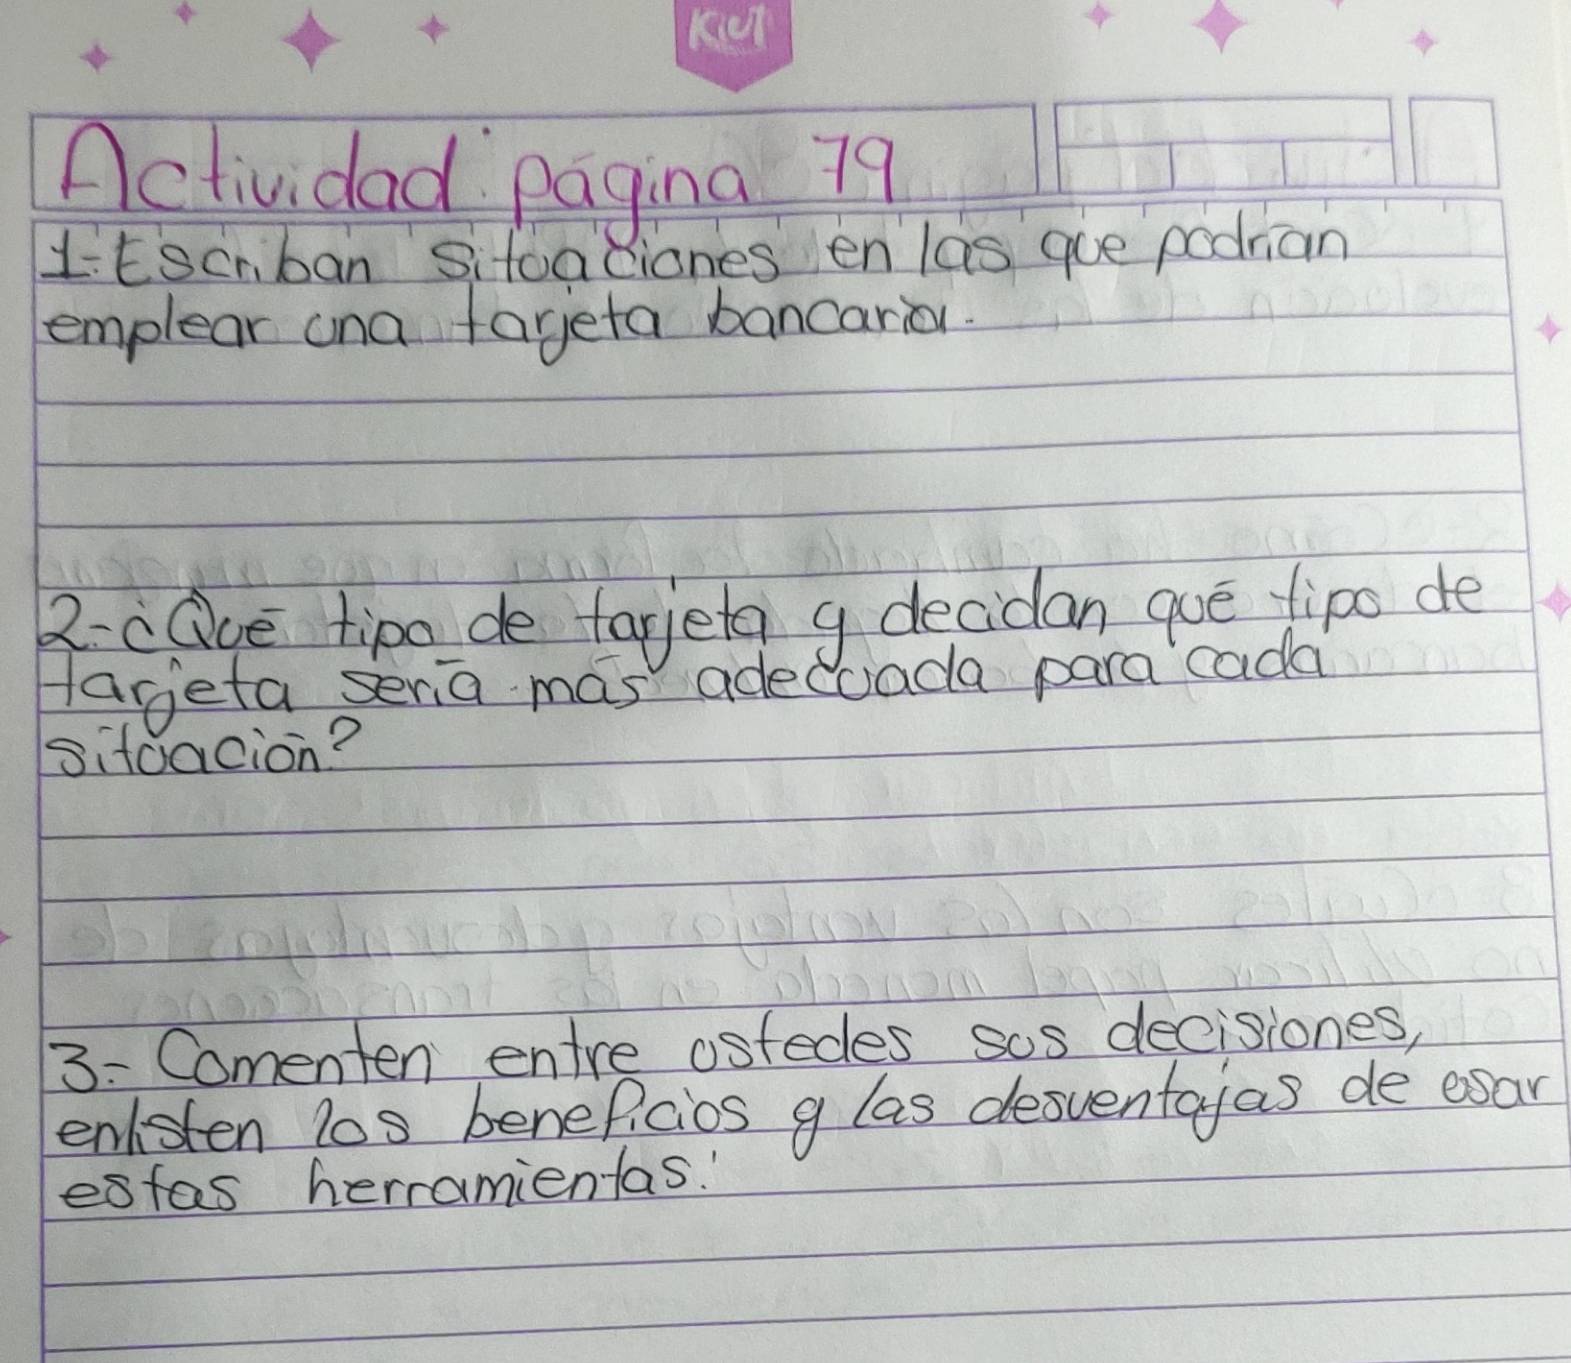 Kiut
Actividad página 79
1.- Escriban situaciones en las que podrían
emplear una tarjeta bancaria.
2.- ¿Qué tipo de tarjeta y decidan qué tipo de
tarjeta sería más adecuada para cada
situación?
3.- Comenten entre ustedes sus decisiones,
enlisten los beneficios y las desventajas de usar
estas herramientas.